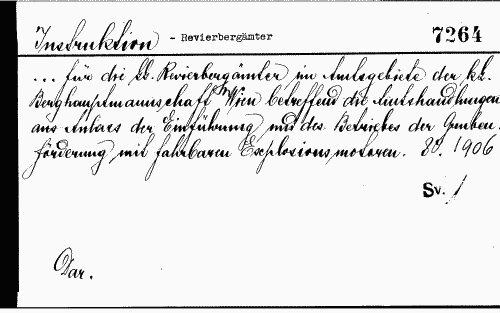 Instruktion - Revierbergämter 7264
... für die kk. Revierbergämter im Amtsgebiete der kk.
Berghauptmannschaft in Wien betreffend die Amtshandlungen
aus Anlass der Einführung und des Betriebes der Gruben-
förderung mit fahrbaren Explosionsmotoren. 1906
Sv. /